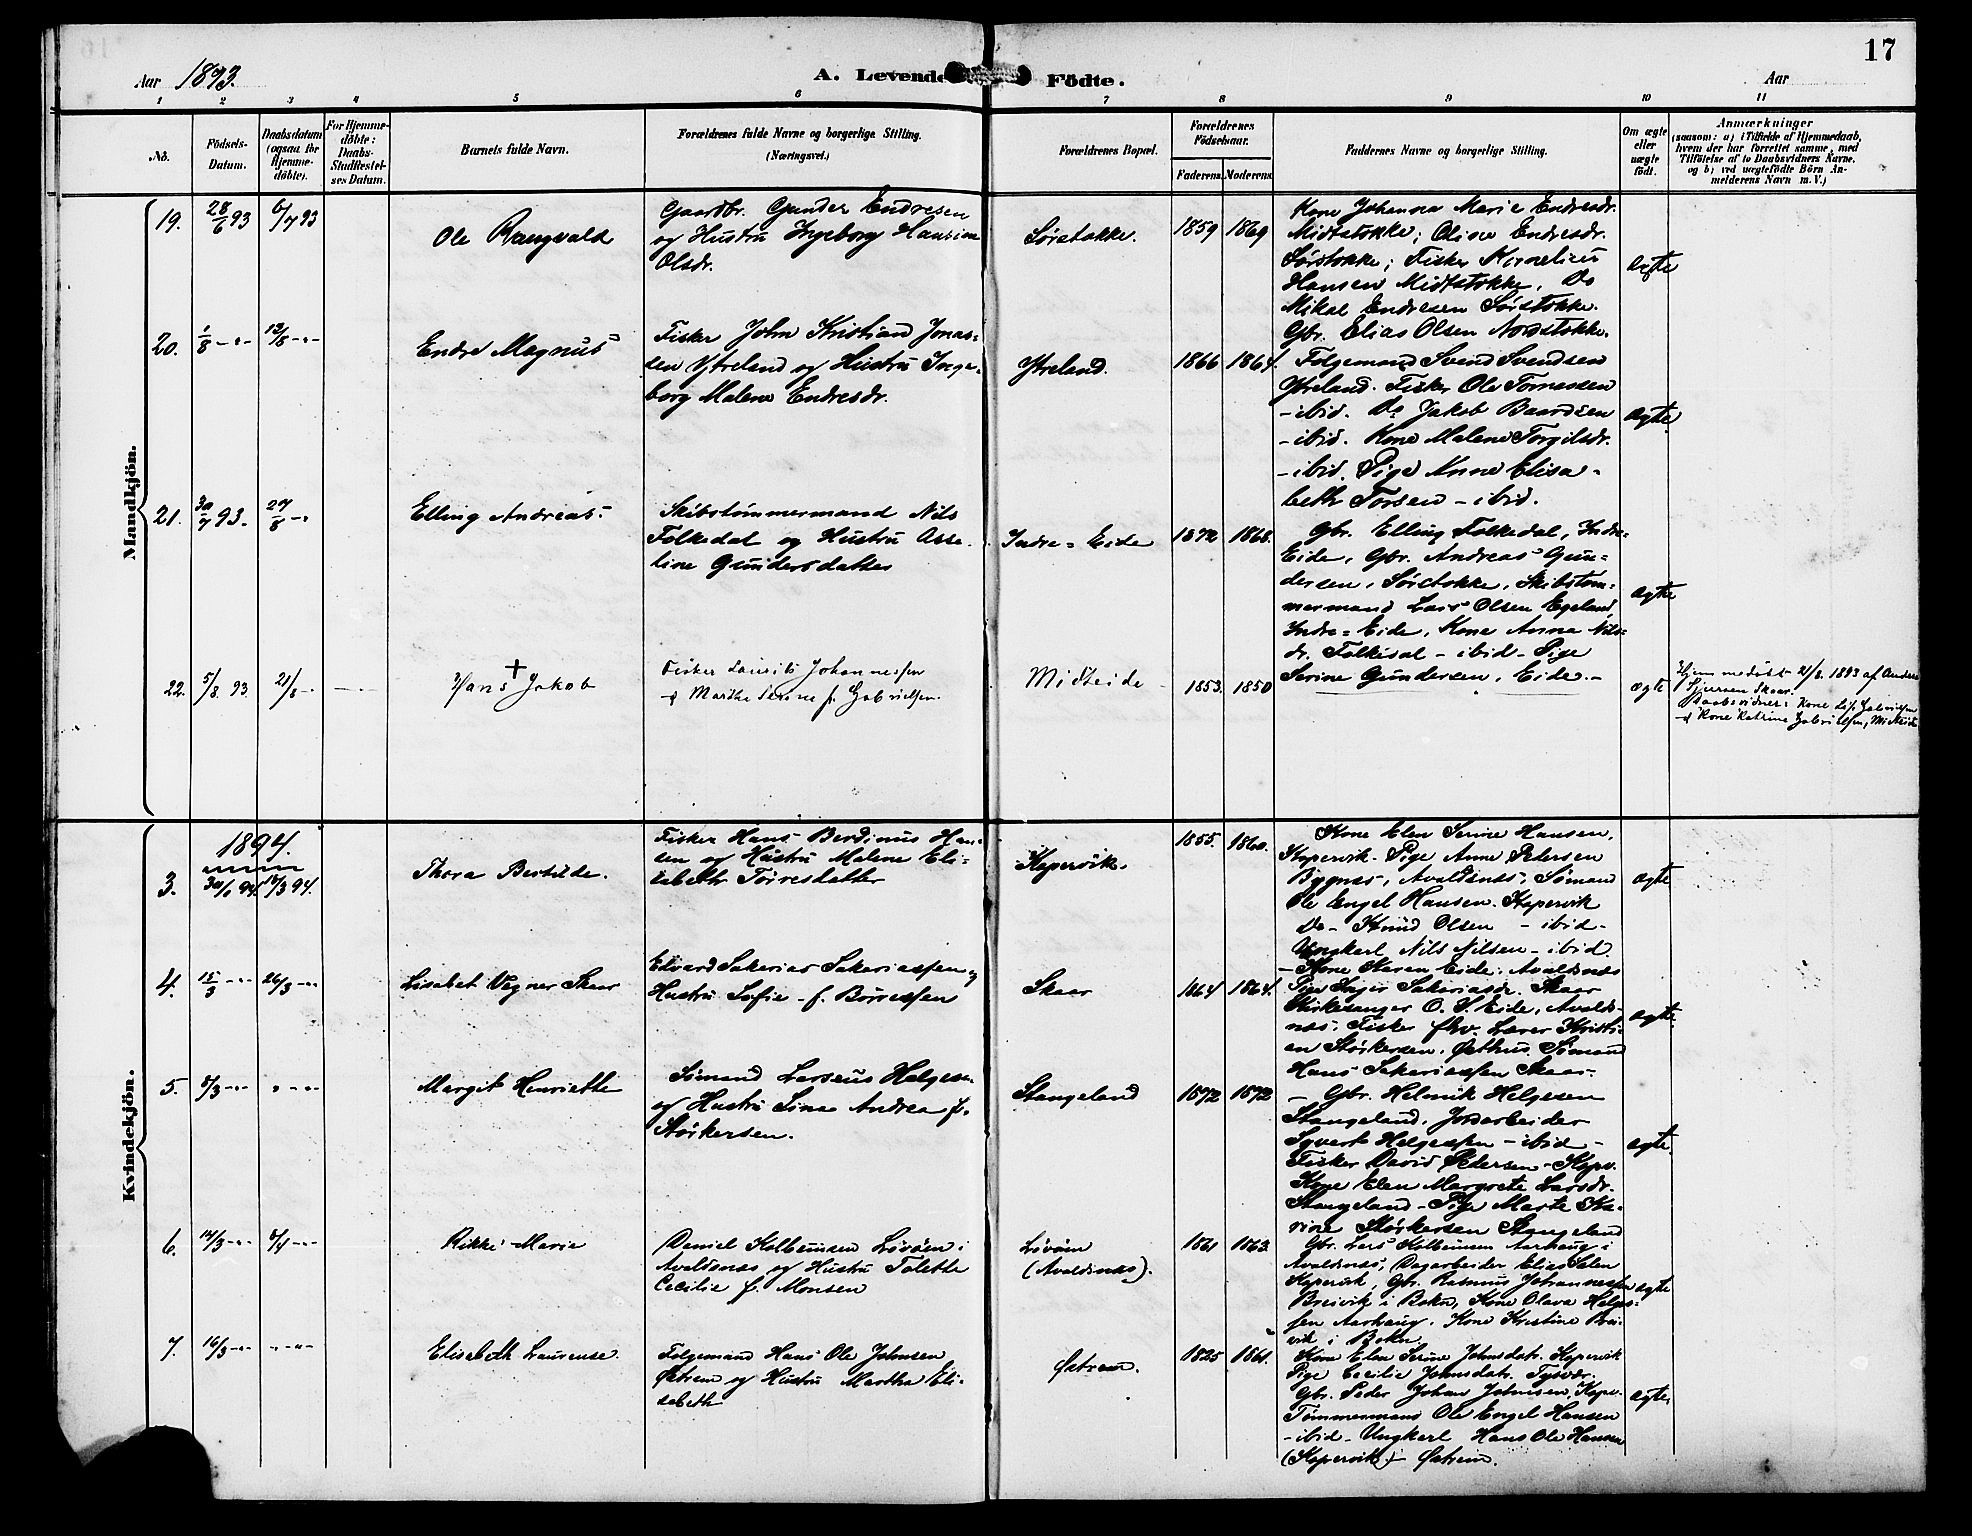 17
Aar 1893.
A. Levende Födte.
Aar
1 2 3 4 5 6 7 8 9 10 11
No.
Födsels-
Datum.
Daabsdatum
(ogsaa for
Hjemme-
döbte).
For Hjemme-
döbte:
Daabs-
Stadfæstel-
ses Datum.
Barnets fulde Navn.
Forældrenes fulde Navne og borgerlige Stilling.
(Næringsvei.)
Forældrenes Bopæl.
Forældrenes
Födselsaar.
Faderens. Moderens.
Faddernes Navne og borgerlige Stilling.
Om ægte
eller
uægte
födt.
Anmærkninger
(saasom: a) i Tilfælde af Hjemmedaab,
hvem der har forrettet samme, med
Tilföielse af to Daabsvidners Navne,
og b) ved uægtefödte Börn An-
melderens Navn m. V.)
Mandkjön.
19.
28/6 93
6/7 93
Ole Rangvald
Gaardbr. Gunder Endresen
og Hustru Ingeborg Hansine
Olsdr.
Sørstokke.
1859 1869
Kone Johanna Marie Endresdr.
Midtstokke; Oline Endresdr.
Sørstokke; Fisker Kornelius
Hansen Midtstokke. Do
Mikal Endresen Sørstokke.
Gbr. Elias Olsen Nordstokke.
ægte
20.
1/8 - "-
13/8 - "-
Endre Magnus
Fisker John Kristian Jonas-
sen Ytreland og Hustru Inge-
borg Malene Endresdr.
Ytreland.
1866 1864.
Folgemand Svend Svendsen
Ytreland. Fisker Ole Tornassen
- ibid. Do Jakob Baardsen
- ibid. Kone Malene Torgilsdr.
- ibid. Pige Anne Elisa-
beth Torsen - ibid.
ægte
21.
30/7 93.
27/8 - "
Elling Andreas
Skibstømmermand Nils
Folkedal og Hustru Asse-
line Gundersdatter
Indre = Eide
1872 1868.
Gbr. Elling Folkedal, Indre-
Eide, Gbr. Andreas Gun-
dersen, Sørstokke, Skibstøm-
mermand Lars Olsen Egeland,
Indre = Eide, Kone Anna Nils-
dr. Folkedal - ibid - Pige
Serine Gundersen, Eide. -
ægte
22.
5/8 93.
21/8 - "
Hans + Jakob
Fisker Laurits Johannessen
& Martha Serine f. Gabrielsen.
Midteide
1853. 1850
ægte
Hjemmedøbt 21/8. 1893 af Anders
Sjursen Skaar.
Daabsvidner: Kone Lis. Gabrielsen
& Kone Katrine Gabrielsen, Midteide
Kvindekjön.
1894.
3.
30/1 94.
18/3 94.
Thora Bertilde.
Fisker Hans Berdinus Han-
sen og Hustru Malene Eli-
sabeth Torresdatter
Kopervik.
1855. 1860.
Kone Elen Serine Hansen,
Kopervik. Pige Anne Petersen
Bygnæs, Avaldsnæs, Sømand
Ole Engel Hansen. Kopervik
Do - Knud Olsen - ibid -
Ungkarl Nils Nilsen - ibid
ægte
4.
15/3 - "-
26/3 - "-
Lisabet Vegner Skaar
Edvard Sakarias Sakariassen og
Hustru Sofie - f. Børresen
Skaar
1864 1864.
- Kone Karen Eide, Avaldsnæs
Pige Inger Sakariasdr. Skaar
Kirkesanger O. S. Eide, Avalds-
næs. Fisker fhv. Lærer Kristi-
an Størkersen. Østhus. Sømand
Hans Sakariassen Skaar -
ægte.
5.
8/3 - "-
" - "-
Margit Henriette
Sømand Larseus Helgesen
og Hustru Lina Andrea f.
Størkersen.
Stangeland
1872 1872
- Gbr. Helmik Helgesen
Stangeland. Jordarbeider
Syvert Helgesen - ibid -
Fisker David Pedersen - Kopv.
Kone Elen Margrete Larsdr.
Stangeland - Pige Marte Ka-
rine Størkersen Stangeland
ægte.
6.
14/3 - "-
8/4 - "-
Rikke Marie
Daniel Kolbeinsen Løvøen i
Avaldsnæs og Hustru Talette
Cecilie f. Monsen
Løvøen
(Avaldsnæs).
1861 1863.
Gbr. Lars Kolbeinsen Aarhaug i
Avaldsnæs, Dagarbeider Elias Salen
Kopervik, Gbr. Rasmus Johannessen
Breivik i Bokn, Kone Olava Helges-
sen Aarhaug. Kone Kristine Brei-
vik i Bokn
ægte
7.
16/3 - "-
" - "-
Elisabeth Laurense.
Folgemand Hans Ole Johnsen
Østrem og Hustru Martha Eli-
sabeth
Østrem.
1825 1861.
Kone Elen Serine Johnsdatr. Kopervik
Pige Cecilie Johnsdatr. Tysvær.
Gbr. Peder Johan Johnsen, Kopv.
Tømmermand Ole Engel Hansen
- ibid - Ungkarl Hans Ole Hansen
(Kopervik) - Østrem.
ægte.